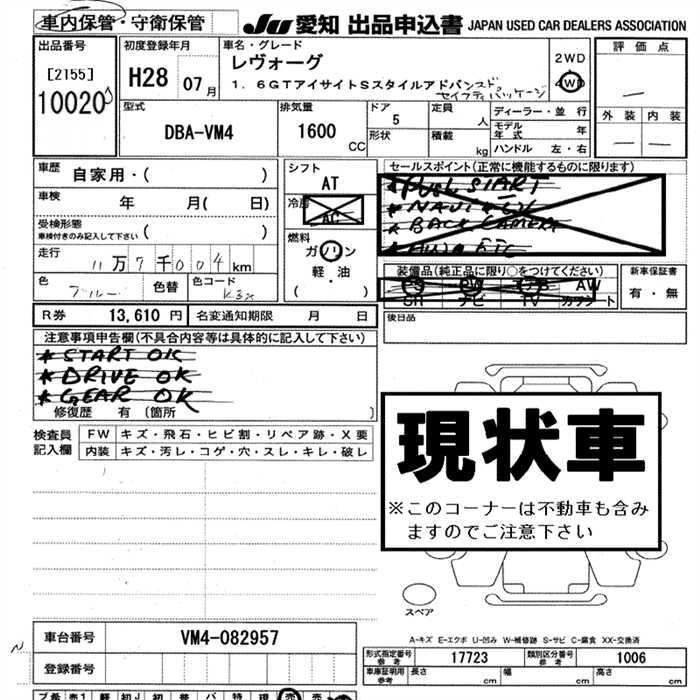 車内保管・守衛保管
JU 愛知 出品申込書 JAPAN USED CAR DEALERS ASSOCIATION
出品番号
[2155]
10020
初度登録年月
H28 07月
車名・グレード
レヴォーグ
1.6GTアイサイトSスタイルアドバンスド
セイフティパッケージ
2WD
4WD
評価点
外装 内装
型式
DBA-VM4
排気量
1600 CC
ドア 5
形状
定員 人
積載 kg
ディーラー・並行
モデル年式 年
ハンドル 左・右
車歴
自家用・( )
車検 年 月( 日)
受検形態
車検付きのみ記入して下さい ( )
走行
11万7千004km
色 ブルー 色替 色コード K3X
シフト
AT
冷房
AC
燃料
ガソリン
軽・油
( )
セールスポイント(正常に機能するものに限ります)
*PUSH START
*NAVI *CV
*BACK CAMERA
*AUX ETC
装備品(純正品に限り○をつけてください)
SR PS ナビ PW TV AW カワシート
新車保証書
有・無
R券 13,610円 名変通知期限 月 日
後日品
注意事項申告欄(不具合内容等は具体的に記入して下さい)
*START OK
*DRIVE OK
*GEAR OK
修復歴 有 (箇所 )
検査員記入欄
FW キズ・飛石・ヒビ割・リペア跡・X要
内装 キズ・汚レ・コゲ・穴・スレ・キレ・破レ
現状車
※このコーナーは不動車も含み
ますのでご注意下さい
スペア
車台番号 VM4-082957
登録番号
A-キズ E-エクボ U-凹み W-補修跡 S-サビ C-腐食 XX-交換済
型式指定番号 参考 17723 類別区分番号 参考 1006
車庫証明用 参考 長さ cm 幅 cm 高さ cm